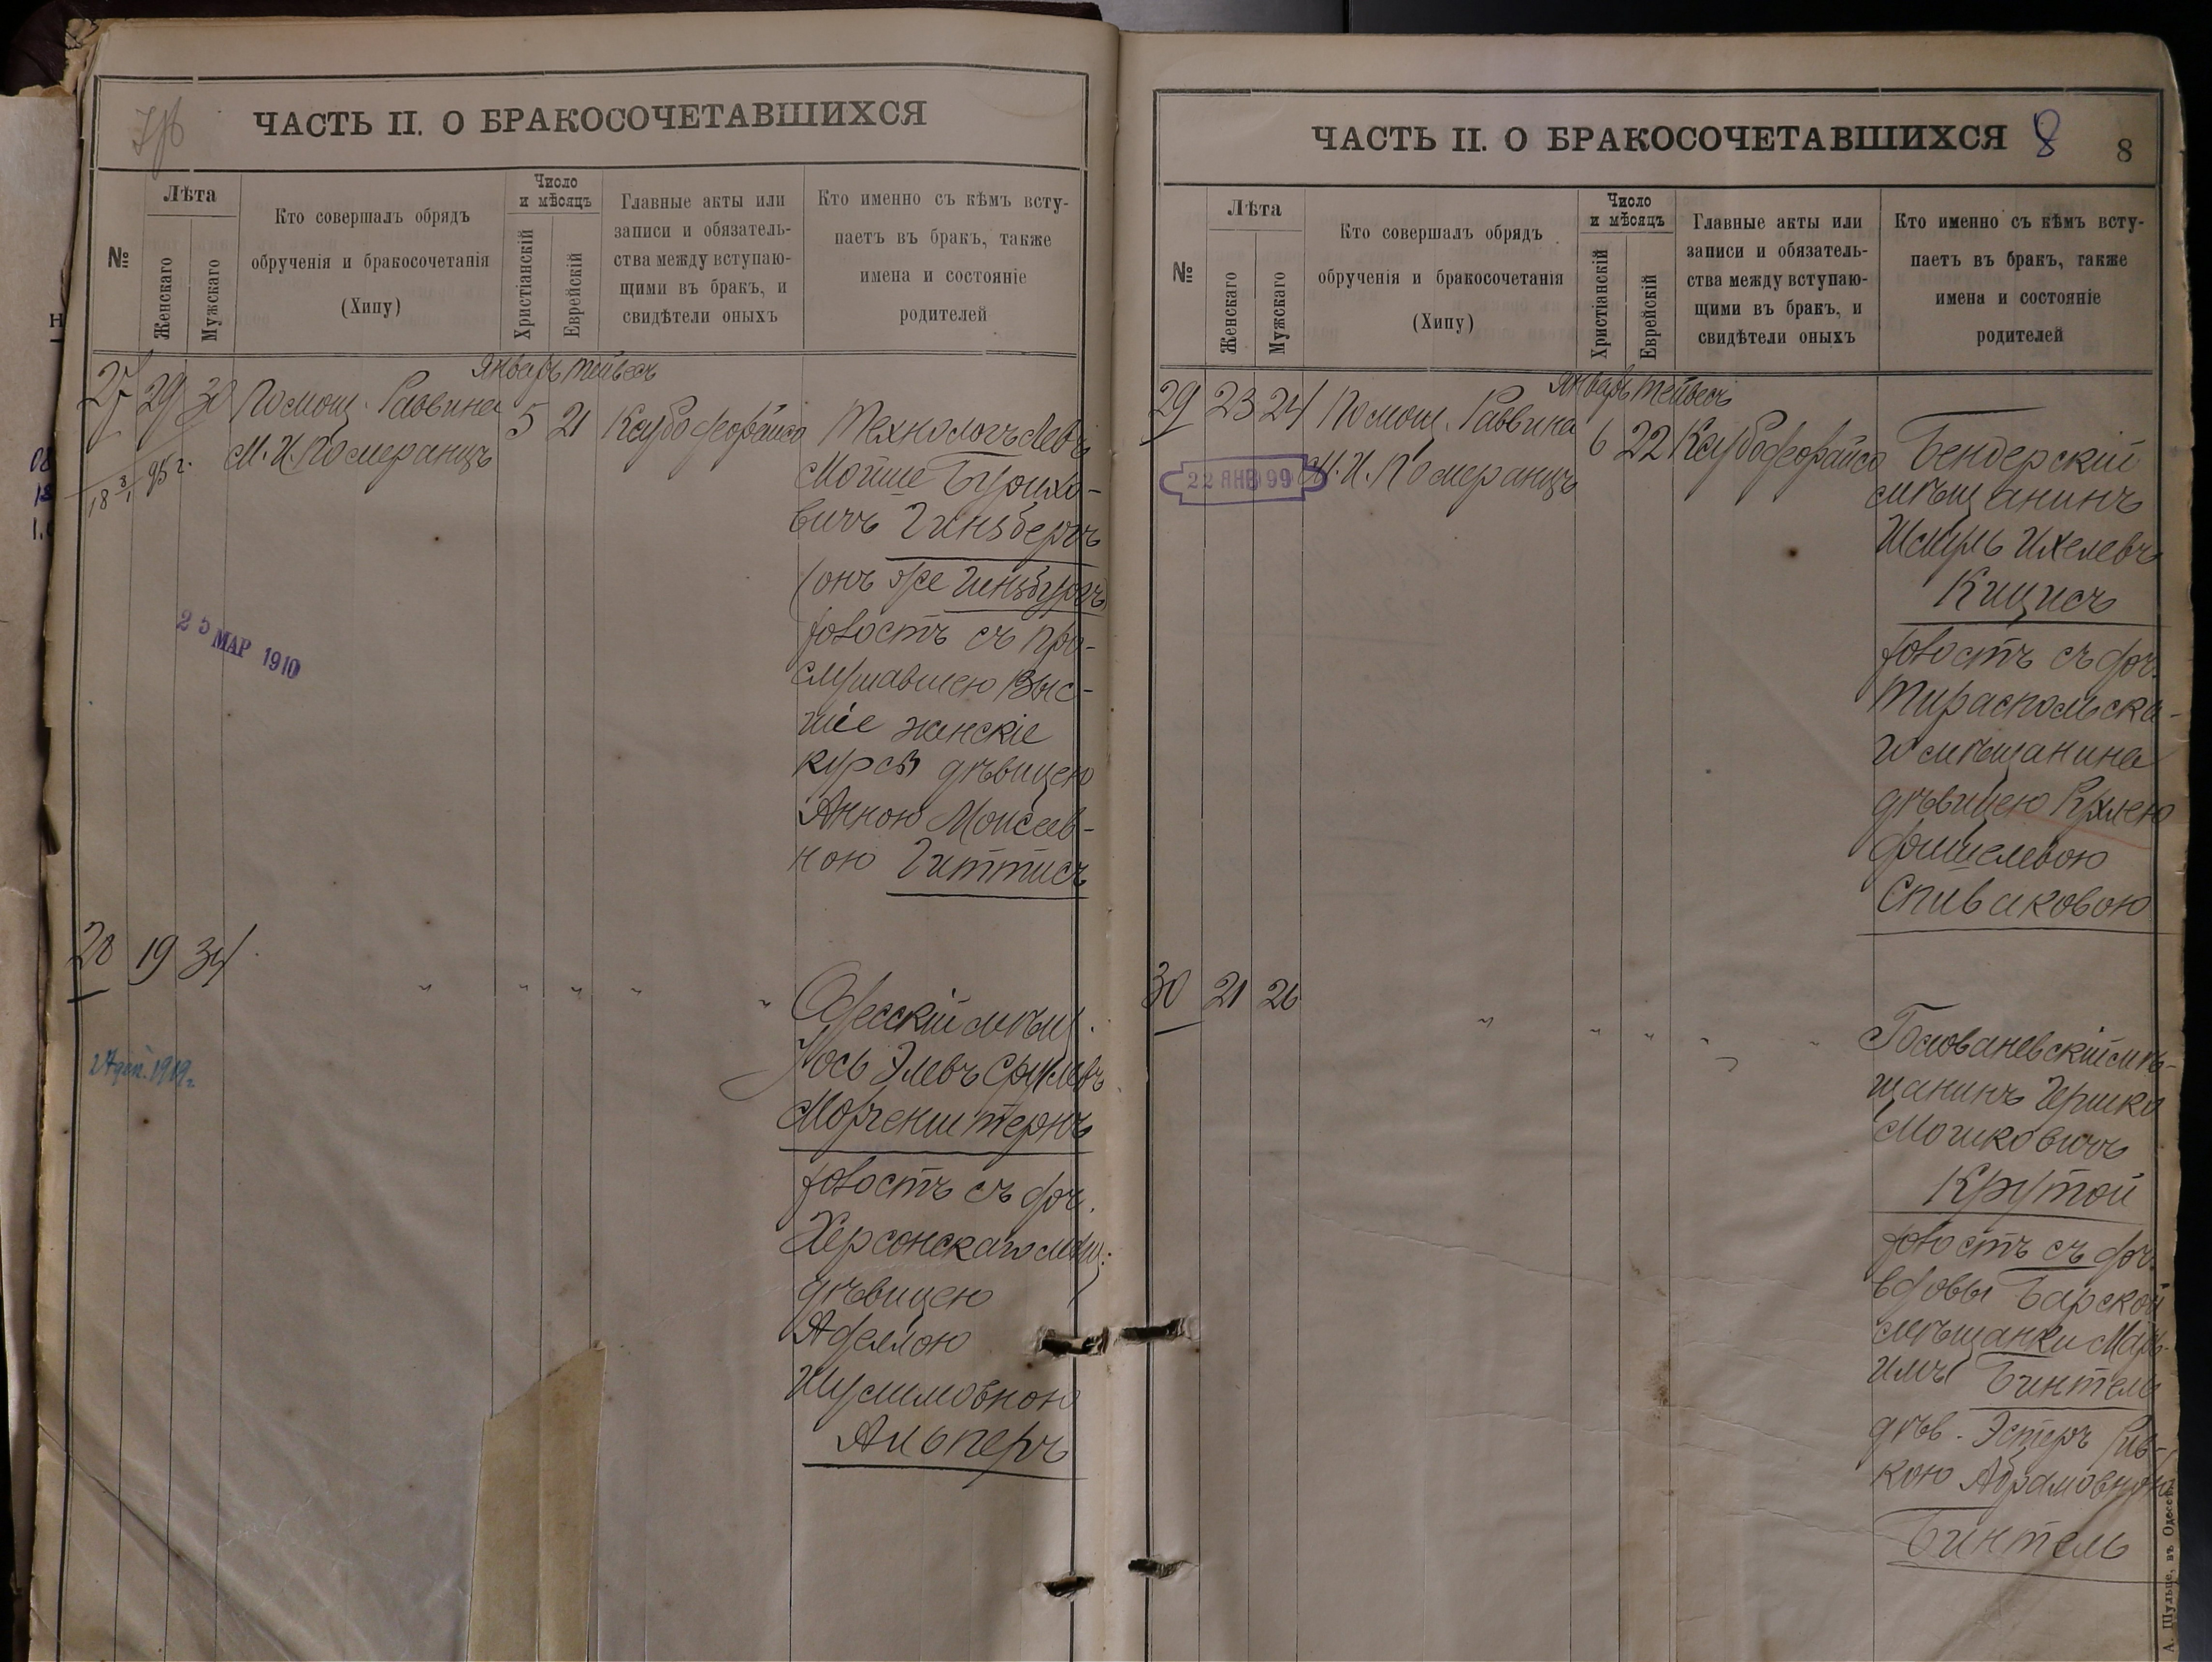 7/б
ЧАСТЬ II. О БРАКОСОЧЕТАВШИХСЯ
№
Лѣта
Женскаго
Мужскаго
Кто совершалъ обрядъ
обрученія и бракосочетанія
(Хипу)
Число
и мѣсяцъ
Христіанскій
Еврейскій
Главные акты или
записи и обязатель-
ства между вступаю-
щими въ бракъ, и
свидѣтели оныхъ
Кто именно съ кѣмъ всту-
паетъ въ бракъ, также
имена и состояніе
родителей
Январь Тейвесъ
27 29 30 Помощ. Раввина 5 21
М. И. Померанцъ
18 3/1 95 г.
25 МАР 1910
Технологъ Левъ
Мойше Бурихо-
вичъ Гинзбергъ
(онъ же Гинзбургъ)
холостъ съ про-
слушавшею Выс-
шіе женскіе
курсы дѣвицею
Анною Моисеев-
ною Гиттисъ
28 19 34 " " " " "
1919 г.
Одесскій мѣщ.
Іось Элевъ Срулевъ
Моргенштернъ
холостъ съ доч.
Херсонскаго мѣщ.
дѣвицею
Аделлою
Шулимовною
Альперъ
ЧАСТЬ II. О БРАКОСОЧЕТАВШИХСЯ 8 8
№
Лѣта
Женскаго
Мужскаго
Кто совершалъ обрядъ
обрученія и бракосочетанія
(Хипу)
Число
и мѣсяцъ
Христіанскій
Еврейскій
Главные акты или
записи и обязатель-
ства между вступаю-
щими въ бракъ, и
свидѣтели оныхъ
Кто именно съ кѣмъ всту-
паетъ въ бракъ, также
имена и состояніе
родителей
Январь Тейвесъ
29 23 24 Помощ. Раввина 6 22
М. И. Померанцъ
22 ЯНВ 99
Бендерскій
мѣщанинъ
Шмуль Ихелевъ
Кицисъ
холостъ съ доч.
Тираспольска-
го мѣщанина
дѣвицею Рухлею
Фишелевою
Спиваковою
30 21 26 " " " " "
Голованевскій мѣ-
щанинъ Гершко
Мошковичъ
Крутой
холостъ съ доч.
вдовы Барской
мѣщанки Марь-
имъ Бинтель
дѣв. Эстеръ Рив-
кою Абрамовною
Бинтель
А. Шульце, въ Одессѣ.